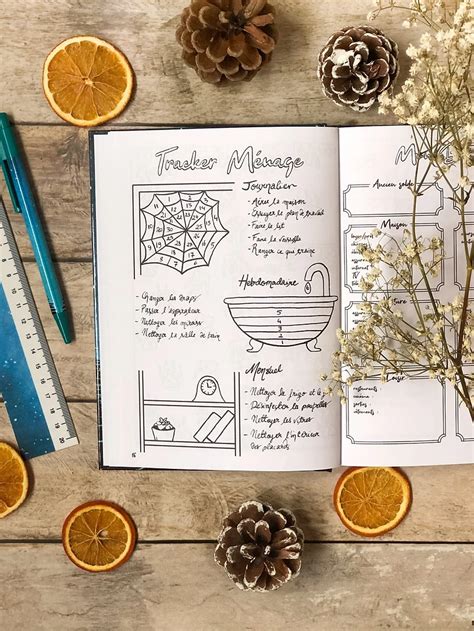 Tracker Ménage
Journalier
- Aérer la maison
- Essuyer le plan de travail
- Faire le lit
- Faire la vaisselle
- Ranger ce qui traine
Hebdomadaire
- Changer les draps
- Passer l'aspirateur
- Nettoyer les miroirs
- Nettoyer la salle de bain
5
4
3
2
1
Mensuel
- Nettoyer le frigo et le
- Désinfecter la poubelle
- Nettoyer les vitres
- Nettoyer l'intérieur
des placards
Ancien solde
Maison
internet
Loisir
restaurants
cinéma
sorties
vêtements